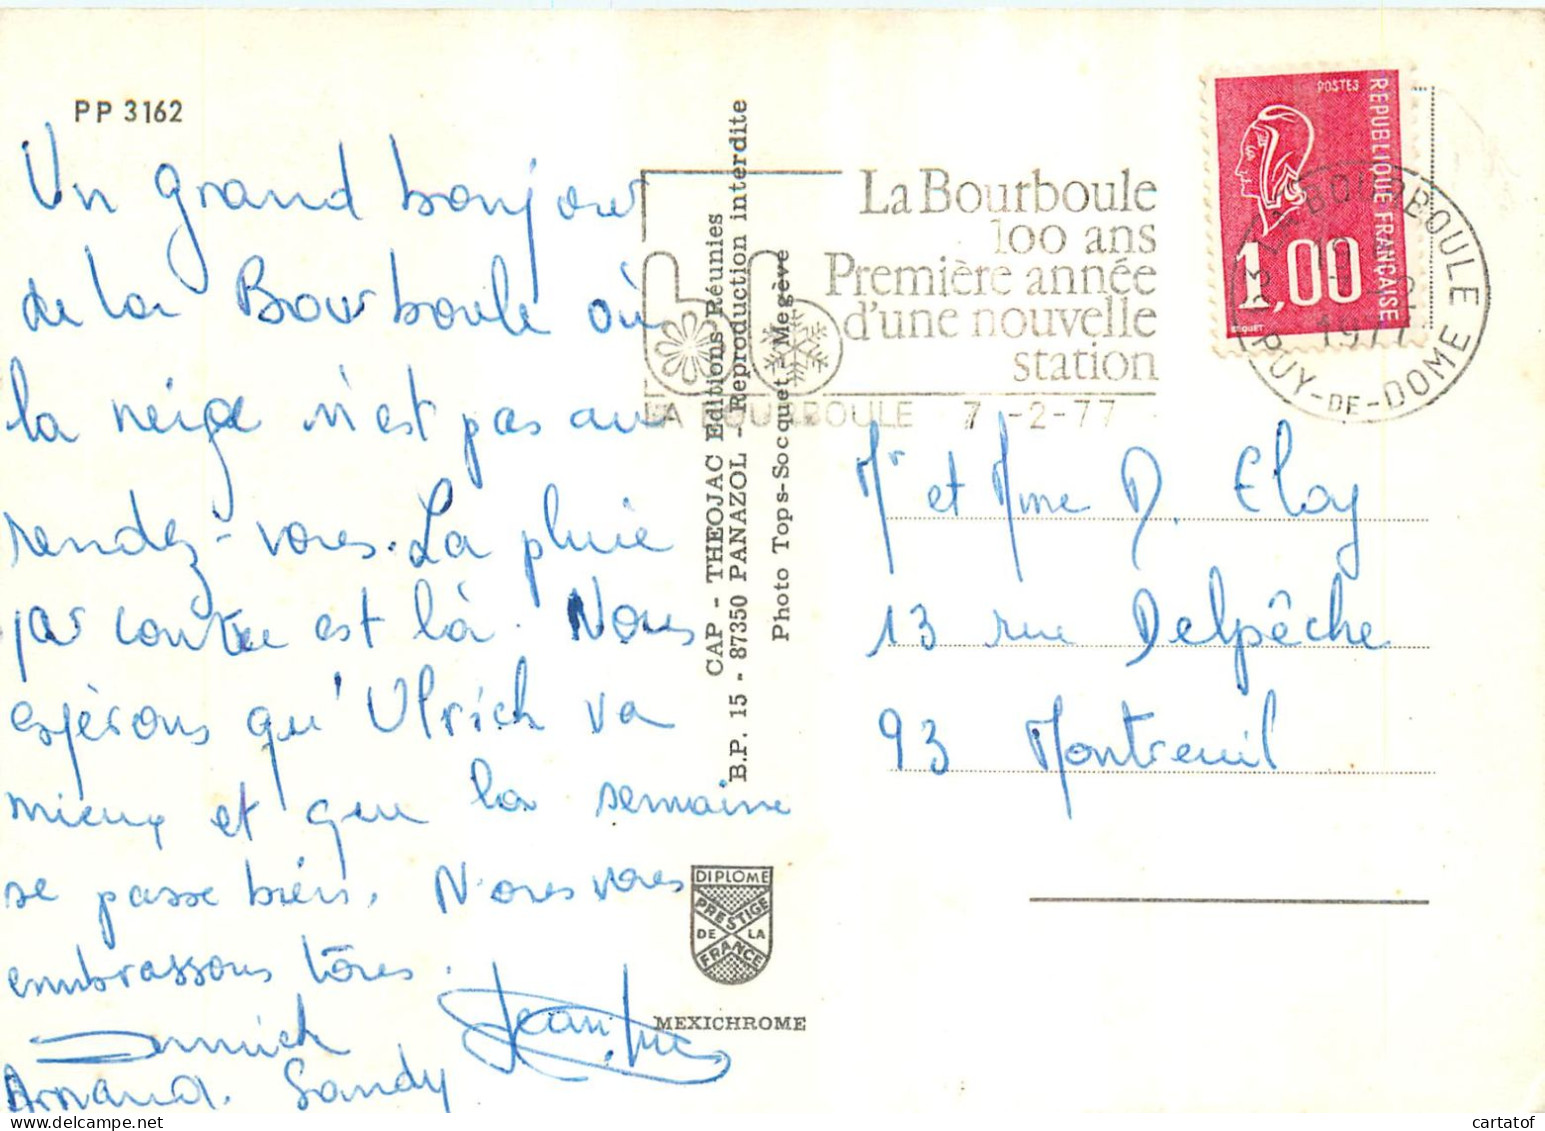 PP 3162
Un grand bonjour
de la Bourboule où
la neige n'est pas au
rendez-vous. La pluie
par contre est là. Nous
espérons qu'Ulrich va
mieux et que la semaine
se passe bien. Nous vous
embrassons tous.
Annick Jean-Luc
Arnaud. Sandy
CAP - THEOJAC Editions Réunies
B.P. 15 - 87350 PANAZOL - Reproduction interdite
Photo Tops-Socquet - Megève
DIPLOME
PRESTIGE
DE LA
FRANCE
MEXICHROME
La Bourboule
100 ans
Première année
d'une nouvelle
station
LA BOURBOULE 7 -2-77
POSTES
REPUBLIQUE FRANÇAISE
1,00
BEQUET
63 LA BOURBOULE
1977
PUY-DE-DOME
Mr et Mme D. Eloy
13 rue Delpêche
93 Montreuil
cartatof